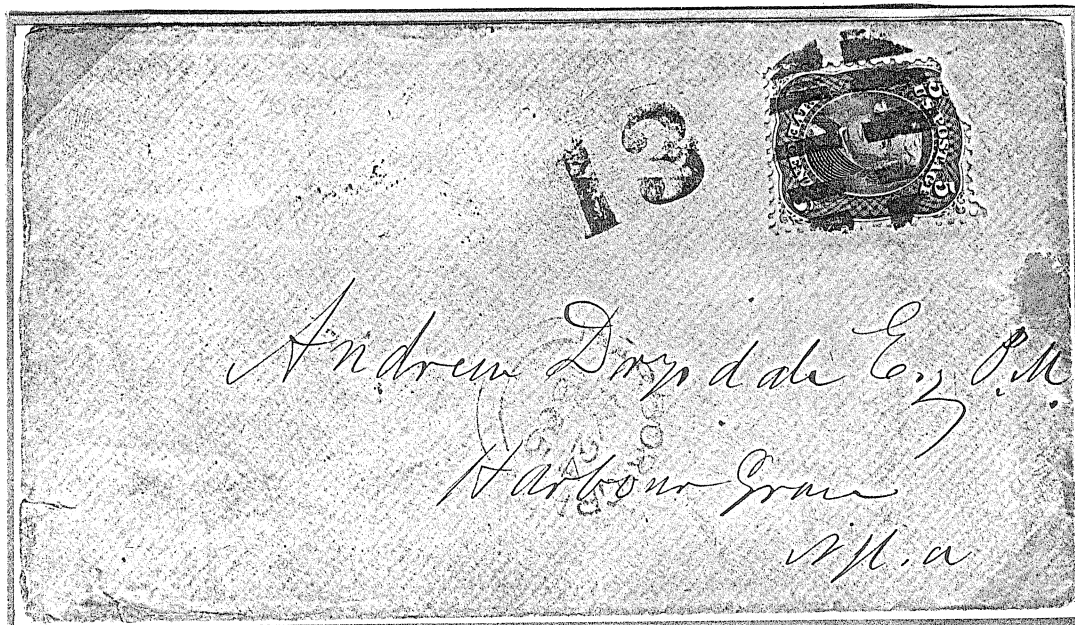 13
U.S. POSTAGE
5 5
FIVE CENTS
Andrew Drysdale Esq P.M.
Harbour Grace